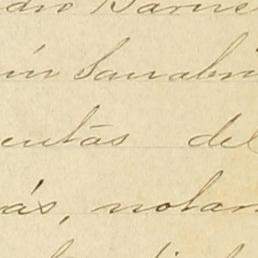 dro Barne
ín Sanabri
entas del
ás, notan